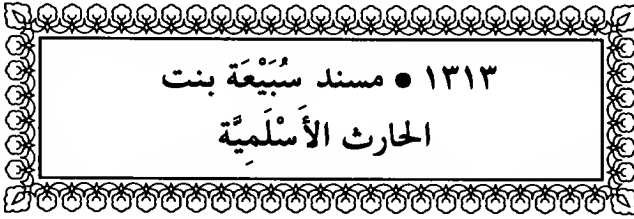 ١٣١٣ ● مسند سُبَيْعَة بنت
الحارث الأَسْلَمِيَّة